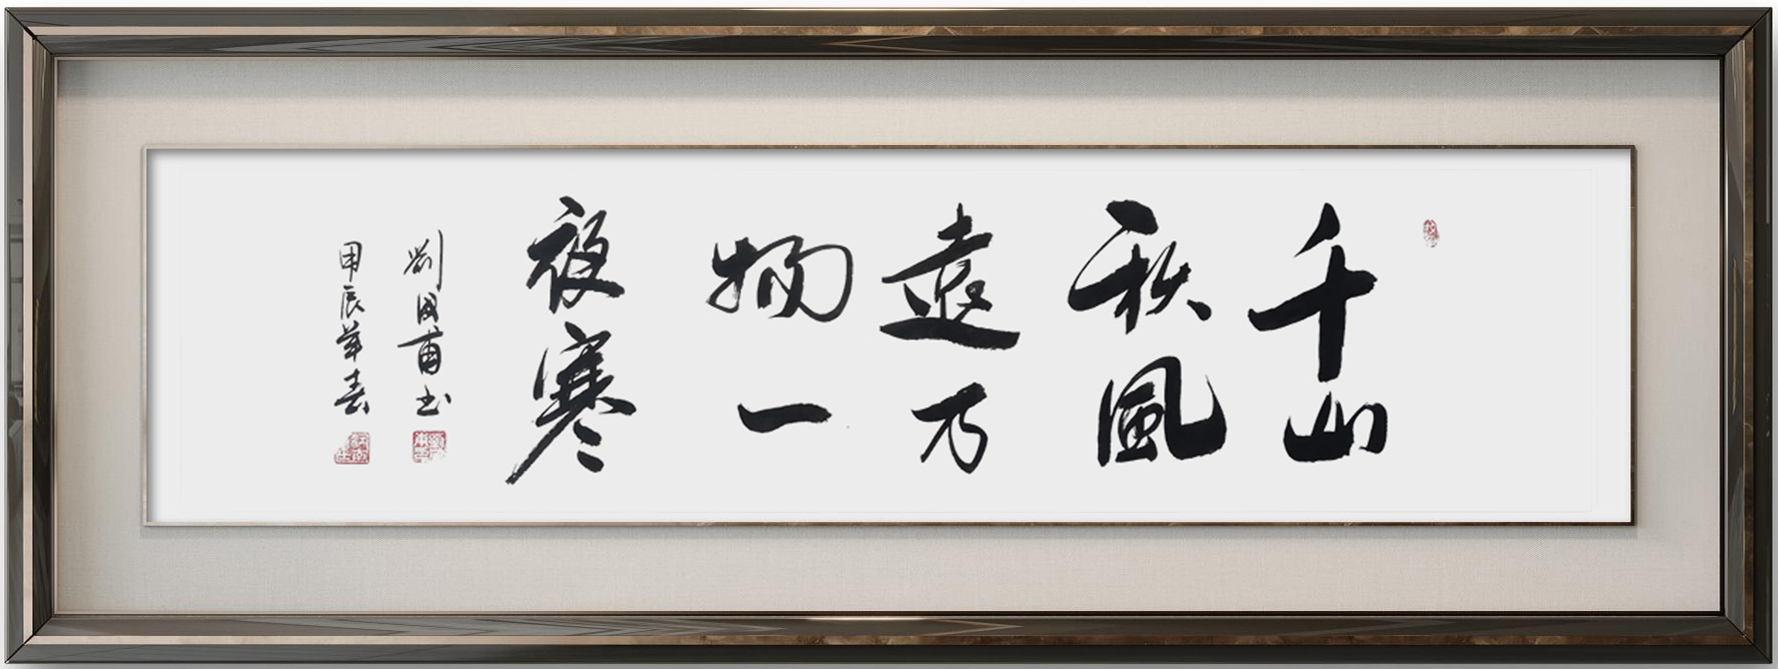 千山
秋風
遠乃
物一
夜寒
劉國甫书
甲辰年春